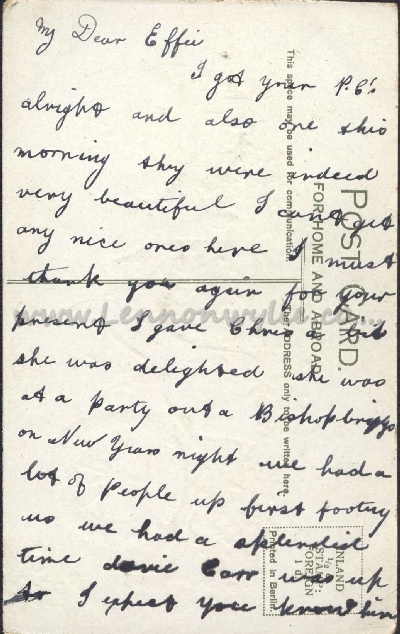 My Dear Effie
I got your P.C's
alright and also one this
morning they were indeed
very beautiful I cant get
any nice ones here I must
thank you again for your
present I gave Chris a bit
she was delighted she was
at a party out a Bishopbriggs
on New Years night we had a
lot of People up first footing
us we had a splendid
time Carr was up
to I expect you know him
POST CARD.
FOR HOME AND ABROAD.
This space may be used for communication.
ADDRESS only to be written here.
INLAND
1/2
STAMP:
FOREIGN
1 d.
Printed in Berlin.
www.Lennonwylie.co